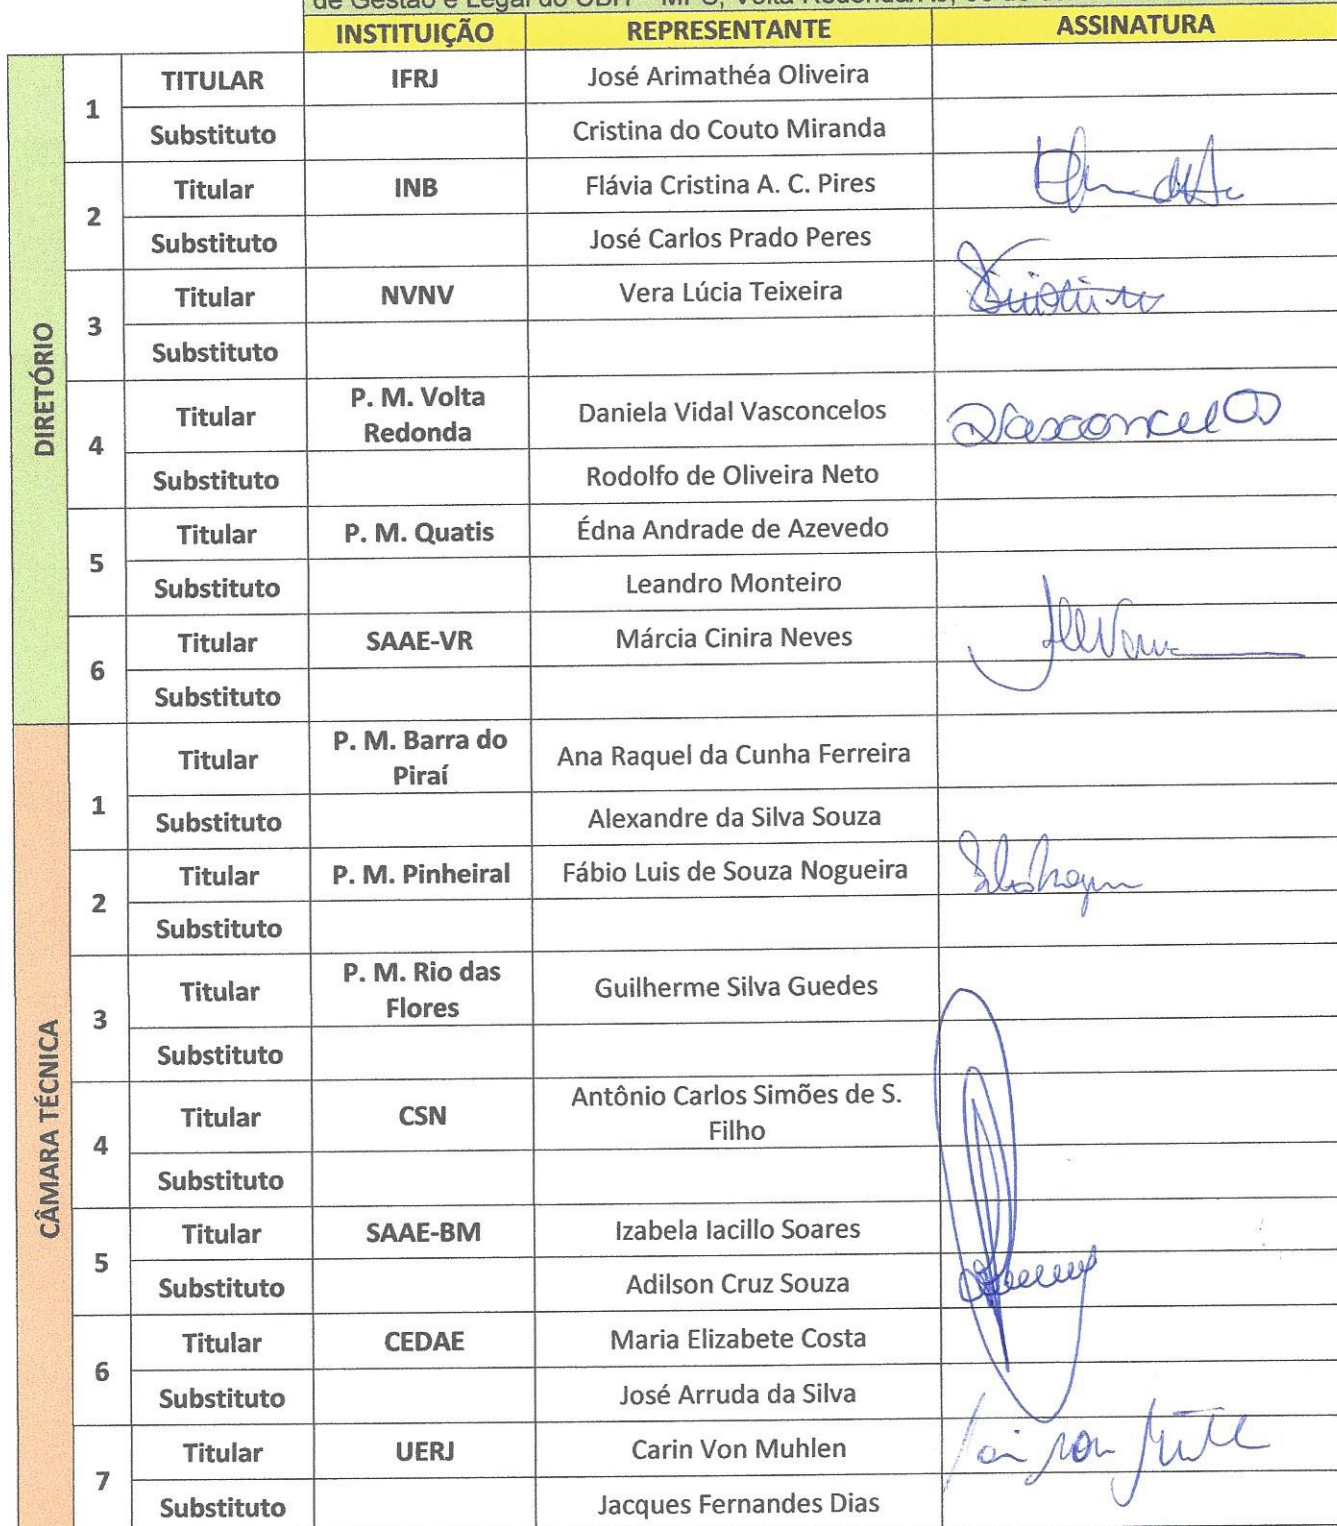 INSTITUIÇÃO REPRESENTANTE ASSINATURA
DIRETÓRIO
1 TITULAR IFRJ José Arimathéa Oliveira
Substituto Cristina do Couto Miranda
2 Titular INB Flávia Cristina A. C. Pires
Substituto José Carlos Prado Peres
3 Titular NVNV Vera Lúcia Teixeira
Substituto
4 Titular P. M. Volta Redonda Daniela Vidal Vasconcelos DVasconcelos
Substituto Rodolfo de Oliveira Neto
5 Titular P. M. Quatis Édna Andrade de Azevedo
Substituto Leandro Monteiro
6 Titular SAAE-VR Márcia Cinira Neves
Substituto
CÂMARA TÉCNICA
1 Titular P. M. Barra do Piraí Ana Raquel da Cunha Ferreira
Substituto Alexandre da Silva Souza
2 Titular P. M. Pinheiral Fábio Luis de Souza Nogueira
Substituto
3 Titular P. M. Rio das Flores Guilherme Silva Guedes
Substituto
4 Titular CSN Antônio Carlos Simões de S. Filho
Substituto
5 Titular SAAE-BM Izabela Iacillo Soares
Substituto Adilson Cruz Souza
6 Titular CEDAE Maria Elizabete Costa
Substituto José Arruda da Silva
7 Titular UERJ Carin Von Muhlen
Substituto Jacques Fernandes Dias